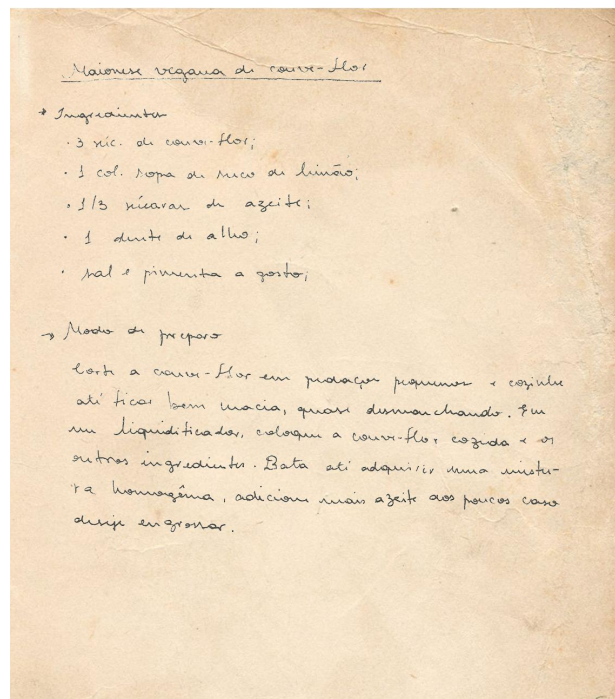 Maionese vegana de couve-flor
→ Ingredientes
· 3 xíc. de couve-flor;
· 1 col. sopa de suco de limão;
· 1/3 xícaras de azeite;
· 1 dente de alho;
· sal e pimenta a gosto;
→ Modo de preparo
Corte a couve-flor em pedaços pequenos e cozinhe
até ficar bem macia, quase desmanchando. Em
um liquidificador, coloque a couve-flor cozida e os
outros ingredientes. Bata até adquirir uma mistu-
ra homogênea, adicione mais azeite aos poucos caso
deseje engrossar.